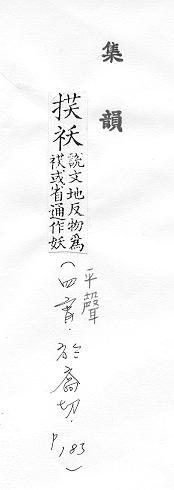 集韻
䄏祅
說文地反物爲
䄏或省通作妖
平聲
(四宵.於喬切.P.183)